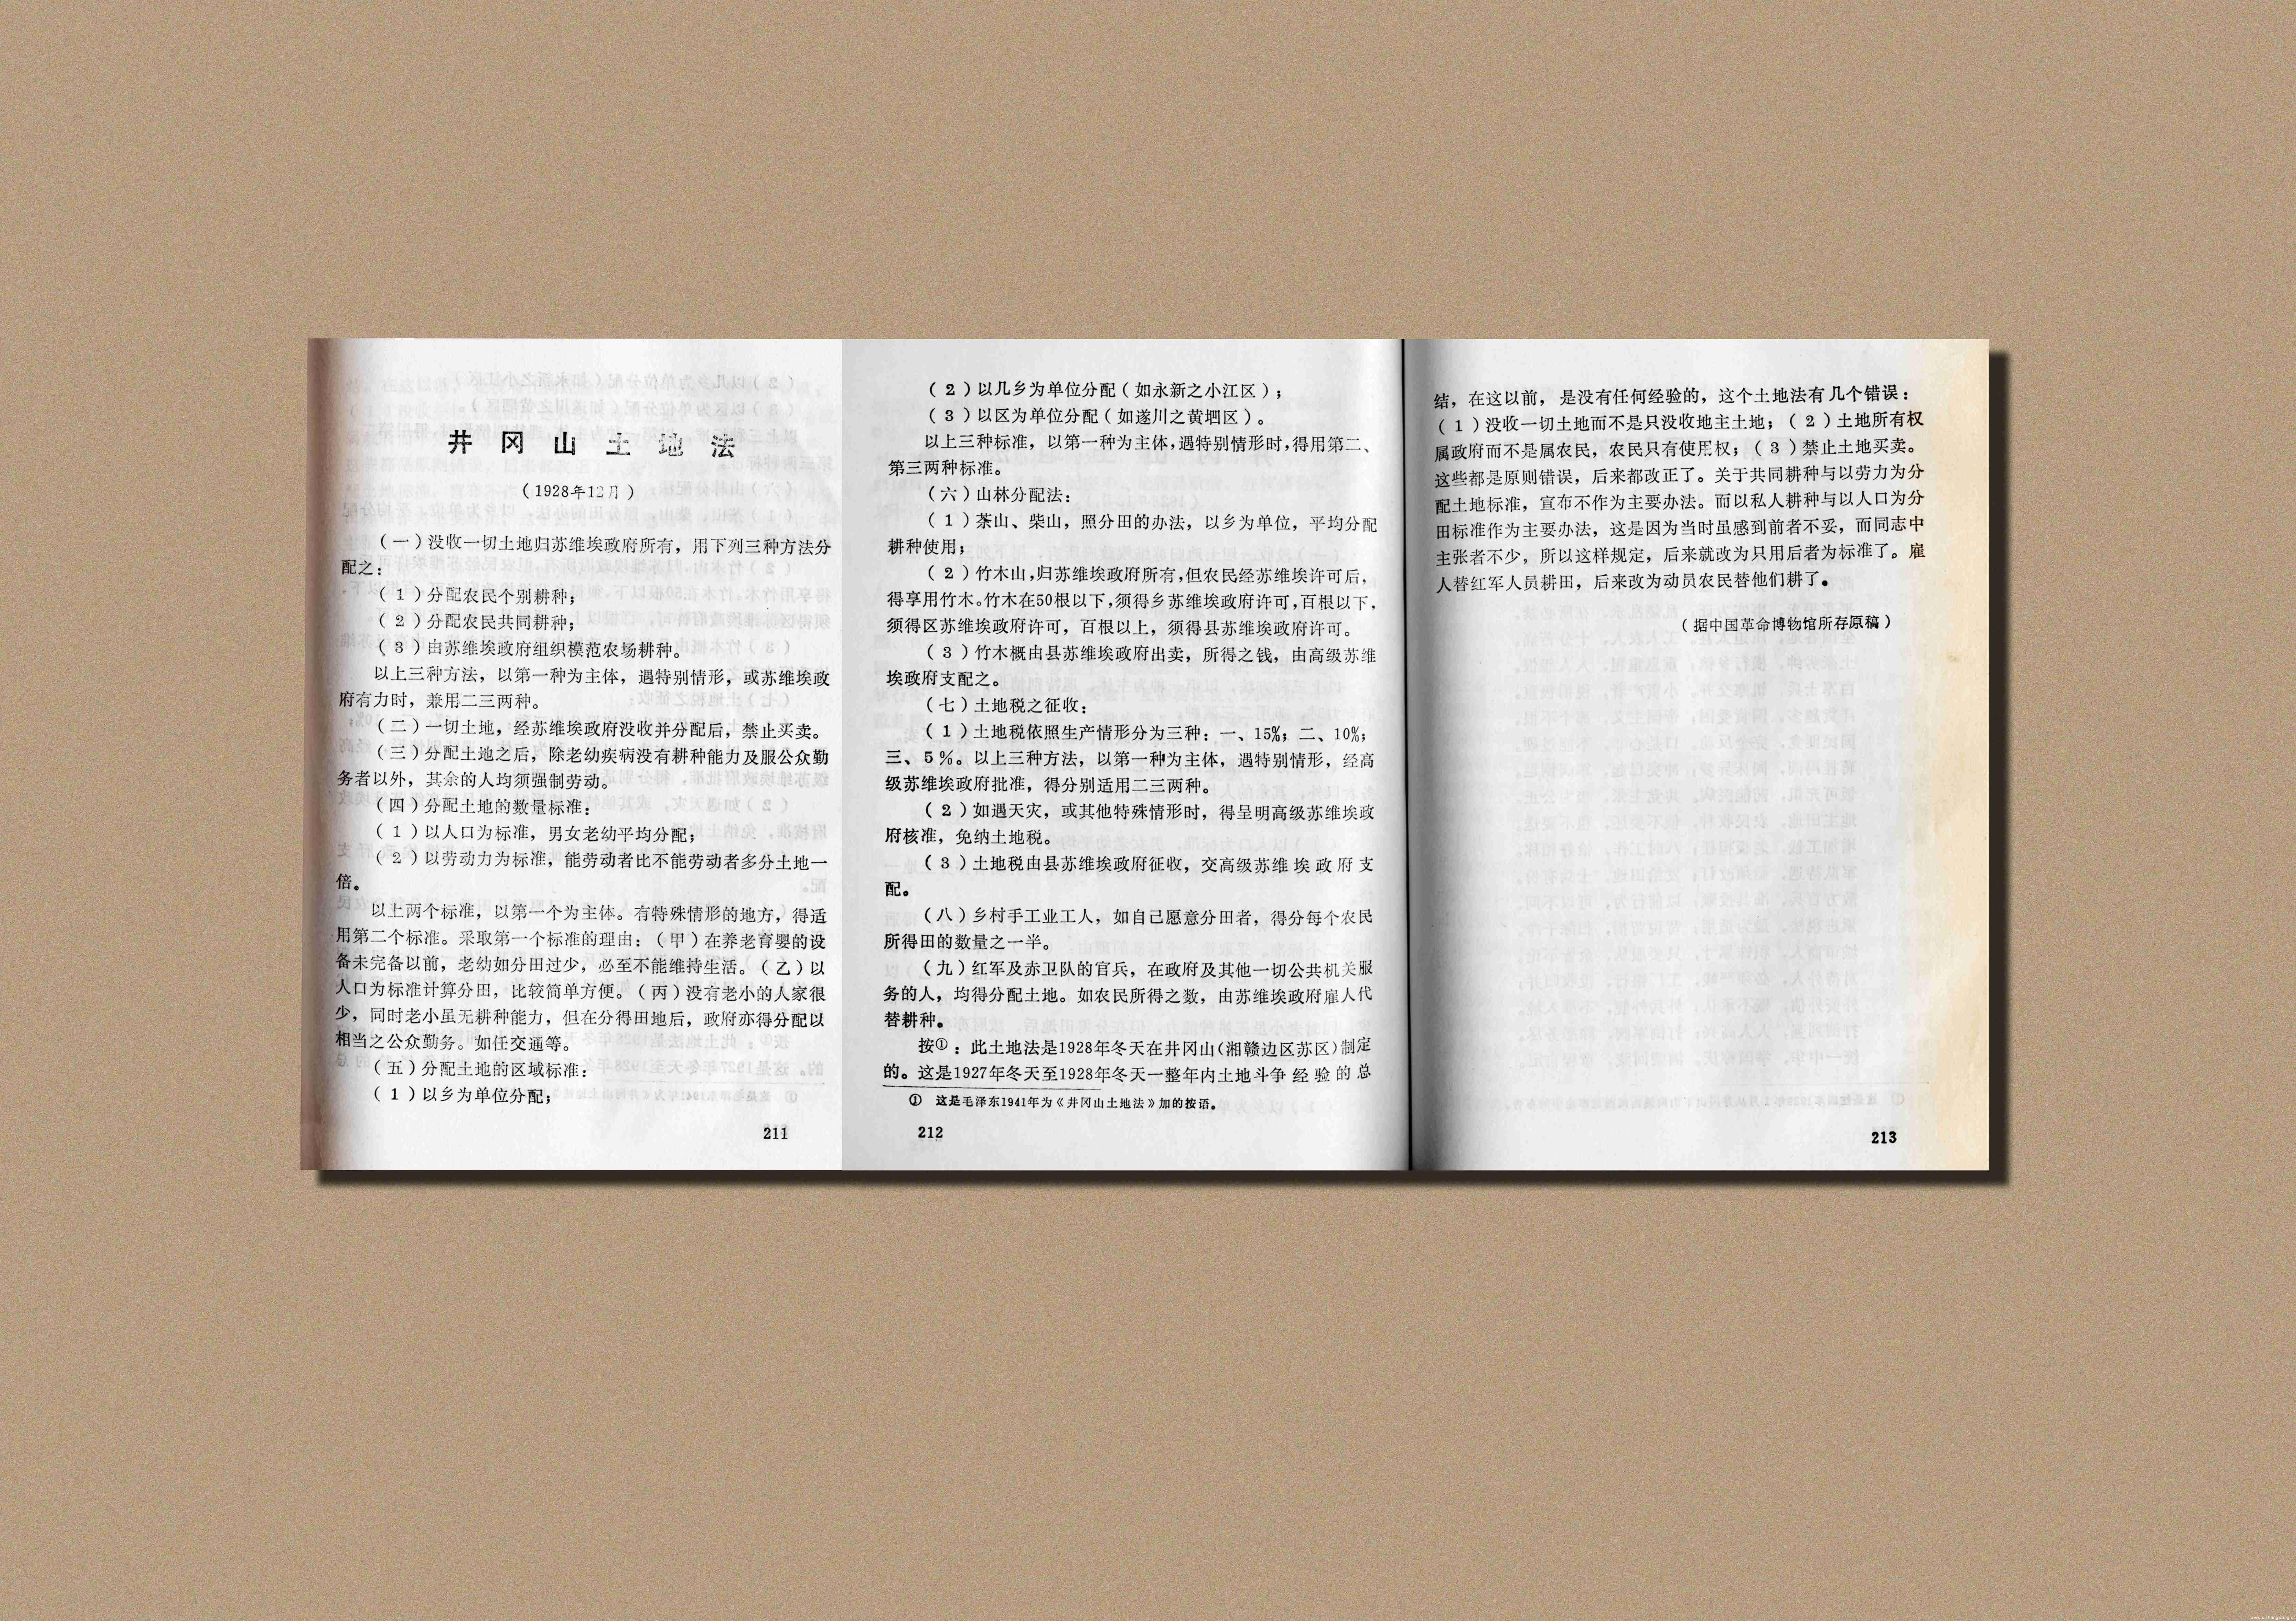 井冈山土地法
（1928年12月）
（一）没收一切土地归苏维埃政府所有，用下列三种方法分
配之：
（1）分配农民个别耕种；
（2）分配农民共同耕种；
（3）由苏维埃政府组织模范农场耕种。
以上三种方法，以第一种为主体，遇特别情形，或苏维埃政
府有力时，兼用二三两种。
（二）一切土地，经苏维埃政府没收并分配后，禁止买卖。
（三）分配土地之后，除老幼疾病没有耕种能力及服公众勤
务者以外，其余的人均须强制劳动。
（四）分配土地的数量标准：
（1）以人口为标准，男女老幼平均分配；
（2）以劳动力为标准，能劳动者比不能劳动者多分土地一
倍。
以上两个标准，以第一个为主体。有特殊情形的地方，得适
用第二个标准。采取第一个标准的理由：（甲）在养老育婴的设
备未完备以前，老幼如分田过少，必至不能维持生活。（乙）以
人口为标准计算分田，比较简单方便。（丙）没有老小的人家很
少，同时老小虽无耕种能力，但在分得田地后，政府亦得分配以
相当之公众勤务。如任交通等。
（五）分配土地的区域标准：
（1）以乡为单位分配；
211
（2）以几乡为单位分配（如永新之小江区）；
（3）以区为单位分配（如遂川之黄坝区）。
以上三种标准，以第一种为主体，遇特别情形时，得用第二、
第三两种标准。
（六）山林分配法：
（1）茶山、柴山，照分田的办法，以乡为单位，平均分配
耕种使用；
（2）竹木山，归苏维埃政府所有，但农民经苏维埃许可后，
得享用竹木。竹木在50根以下，须得乡苏维埃政府许可，百根以下，
须得区苏维埃政府许可，百根以上，须得县苏维埃政府许可。
（3）竹木概由县苏维埃政府出卖，所得之钱，由高级苏维
埃政府支配之。
（七）土地税之征收：
（1）土地税依照生产情形分为三种：一、15%；二、10%；
三、5%。以上三种方法，以第一种为主体，遇特别情形，经高
级苏维埃政府批准，得分别适用二三两种。
（2）如遇天灾，或其他特殊情形时，得呈明高级苏维埃政
府核准，免纳土地税。
（3）土地税由县苏维埃政府征收，交高级苏维埃政府支
配。
（八）乡村手工业工人，如自己愿意分田者，得分每个农民
所得田的数量之一半。
（九）红军及赤卫队的官兵，在政府及其他一切公共机关服
务的人，均得分配土地。如农民所得之数，由苏维埃政府雇人代
替耕种。
按①：此土地法是1928年冬天在井冈山（湘赣边区苏区）制定
的。这是1927年冬天至1928年冬天一整年内土地斗争经验的总
① 这是毛泽东1941年为《井冈山土地法》加的按语。
212
结，在这以前，是没有任何经验的，这个土地法有几个错误：
（1）没收一切土地而不是只没收地主土地；（2）土地所有权
属政府而不是属农民，农民只有使用权；（3）禁止土地买卖。
这些都是原则错误，后来都改正了。关于共同耕种与以劳力为分
配土地标准，宣布不作为主要办法。而以私人耕种与以人口为分
田标准作为主要办法，这是因为当时虽感到前者不妥，而同志中
主张者不少，所以这样规定，后来就改为只用后者为标准了。雇
人替红军人员耕田，后来改为动员农民替他们耕了。
（据中国革命博物馆所存原稿）
213